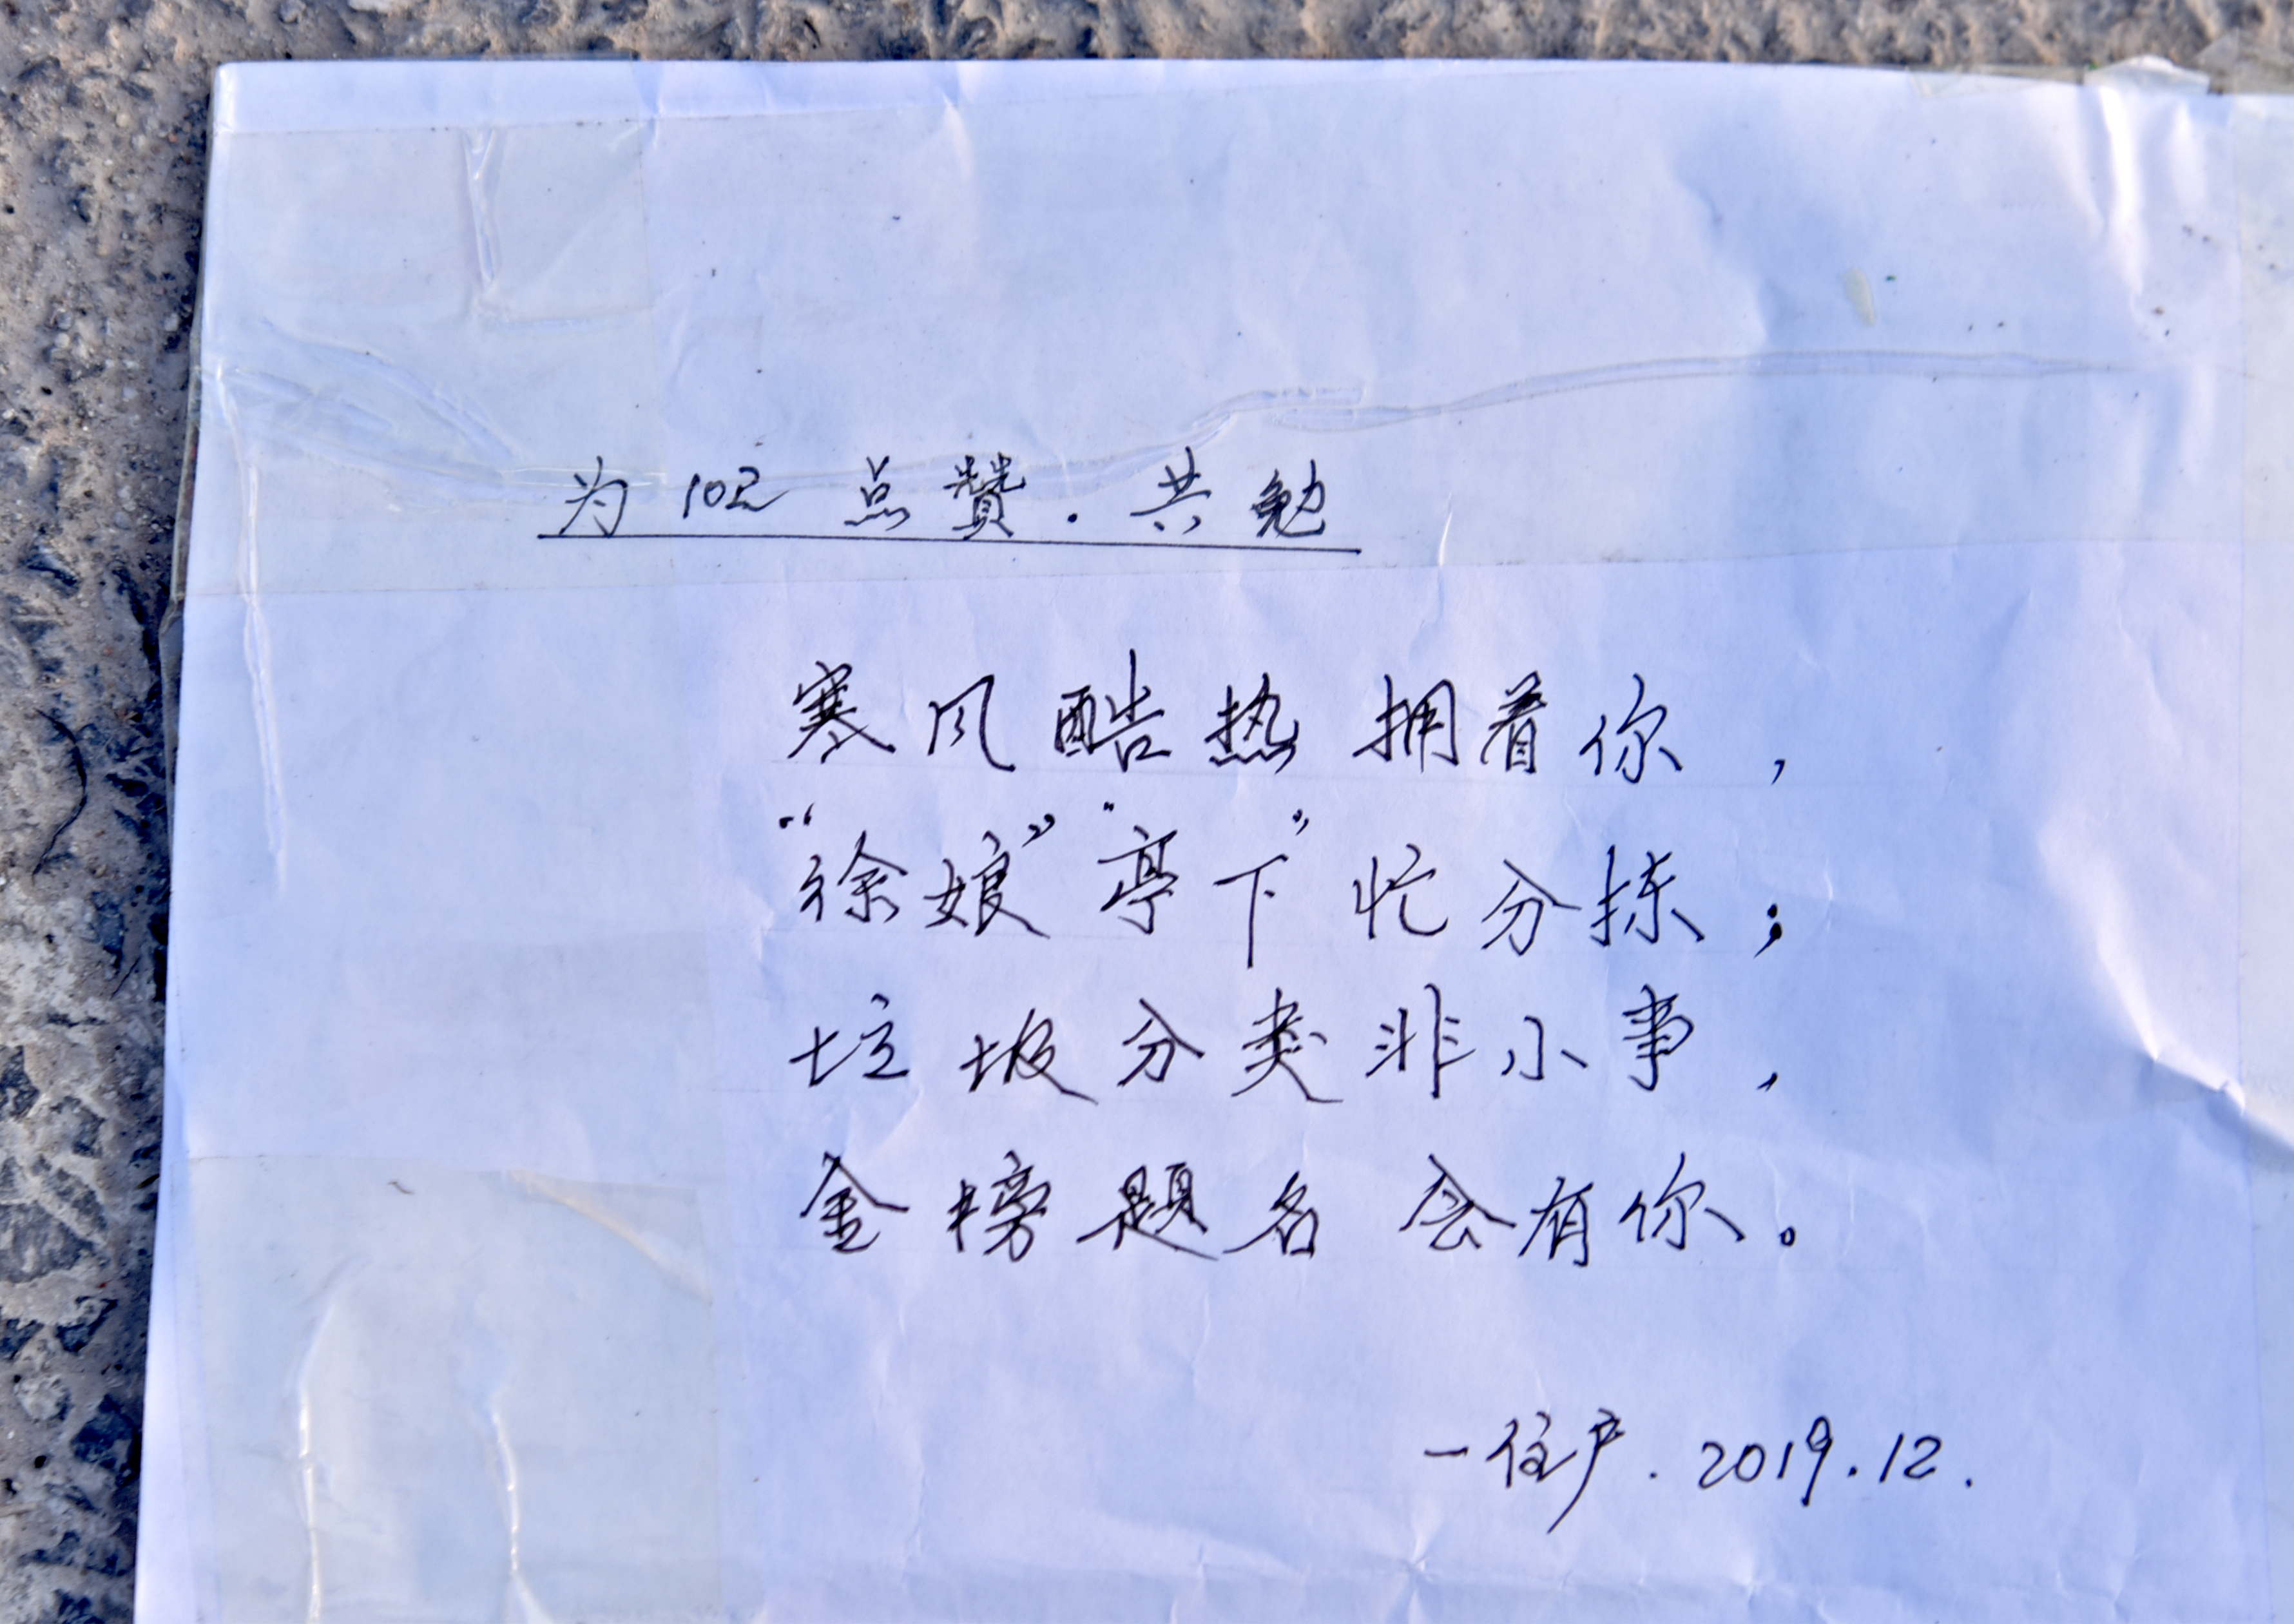 为102点赞.共勉
寒风酷热拥着你，
“徐娘”“亭下”忙分拣；
垃圾分类非小事，
金榜题名会有你。
一住户.2019.12.